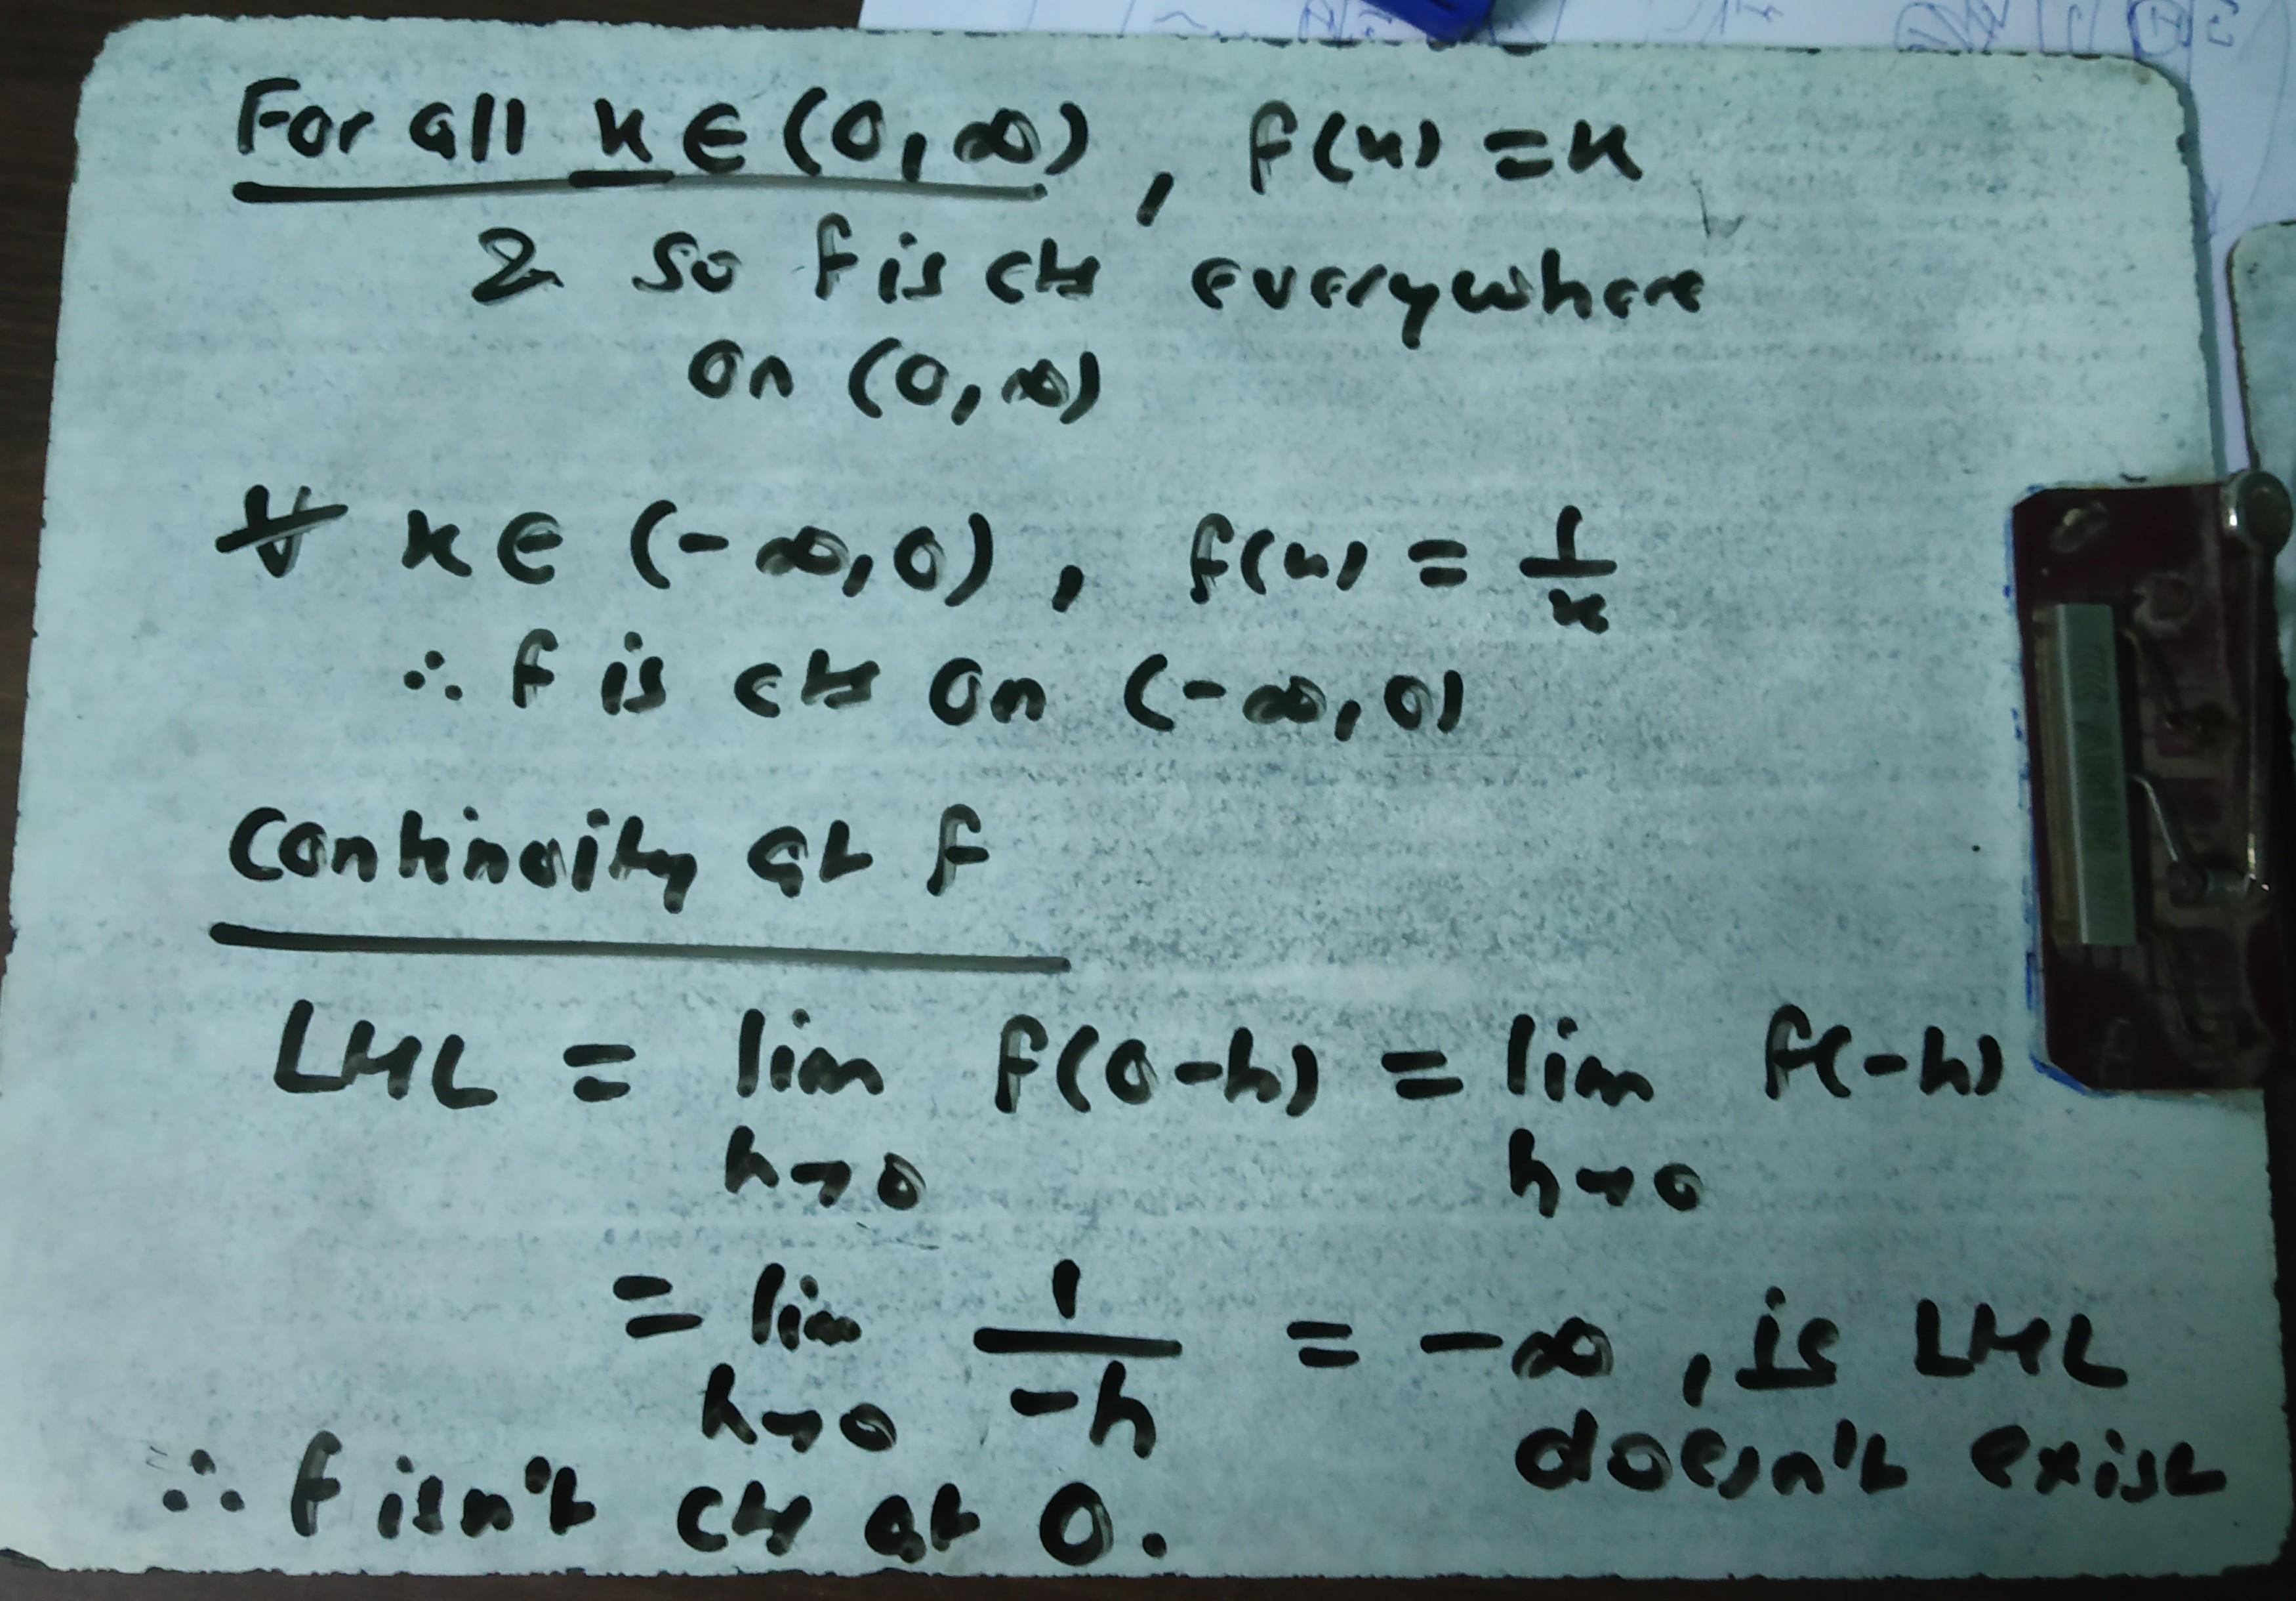 For all x ∈ (0, ∞), f(x) = x
& so f is cts everywhere
on (0, ∞)
∀ x ∈ (-∞, 0), f(x) = 1/x
∴ f is cts on (-∞, 0)
Continuity at f
LHL = lim h→0 f(0-h) = lim h→0 f(-h)
= lim h→0 1/-h = -∞, is LHL
doesn't exist
∴ f isn't cts at 0.